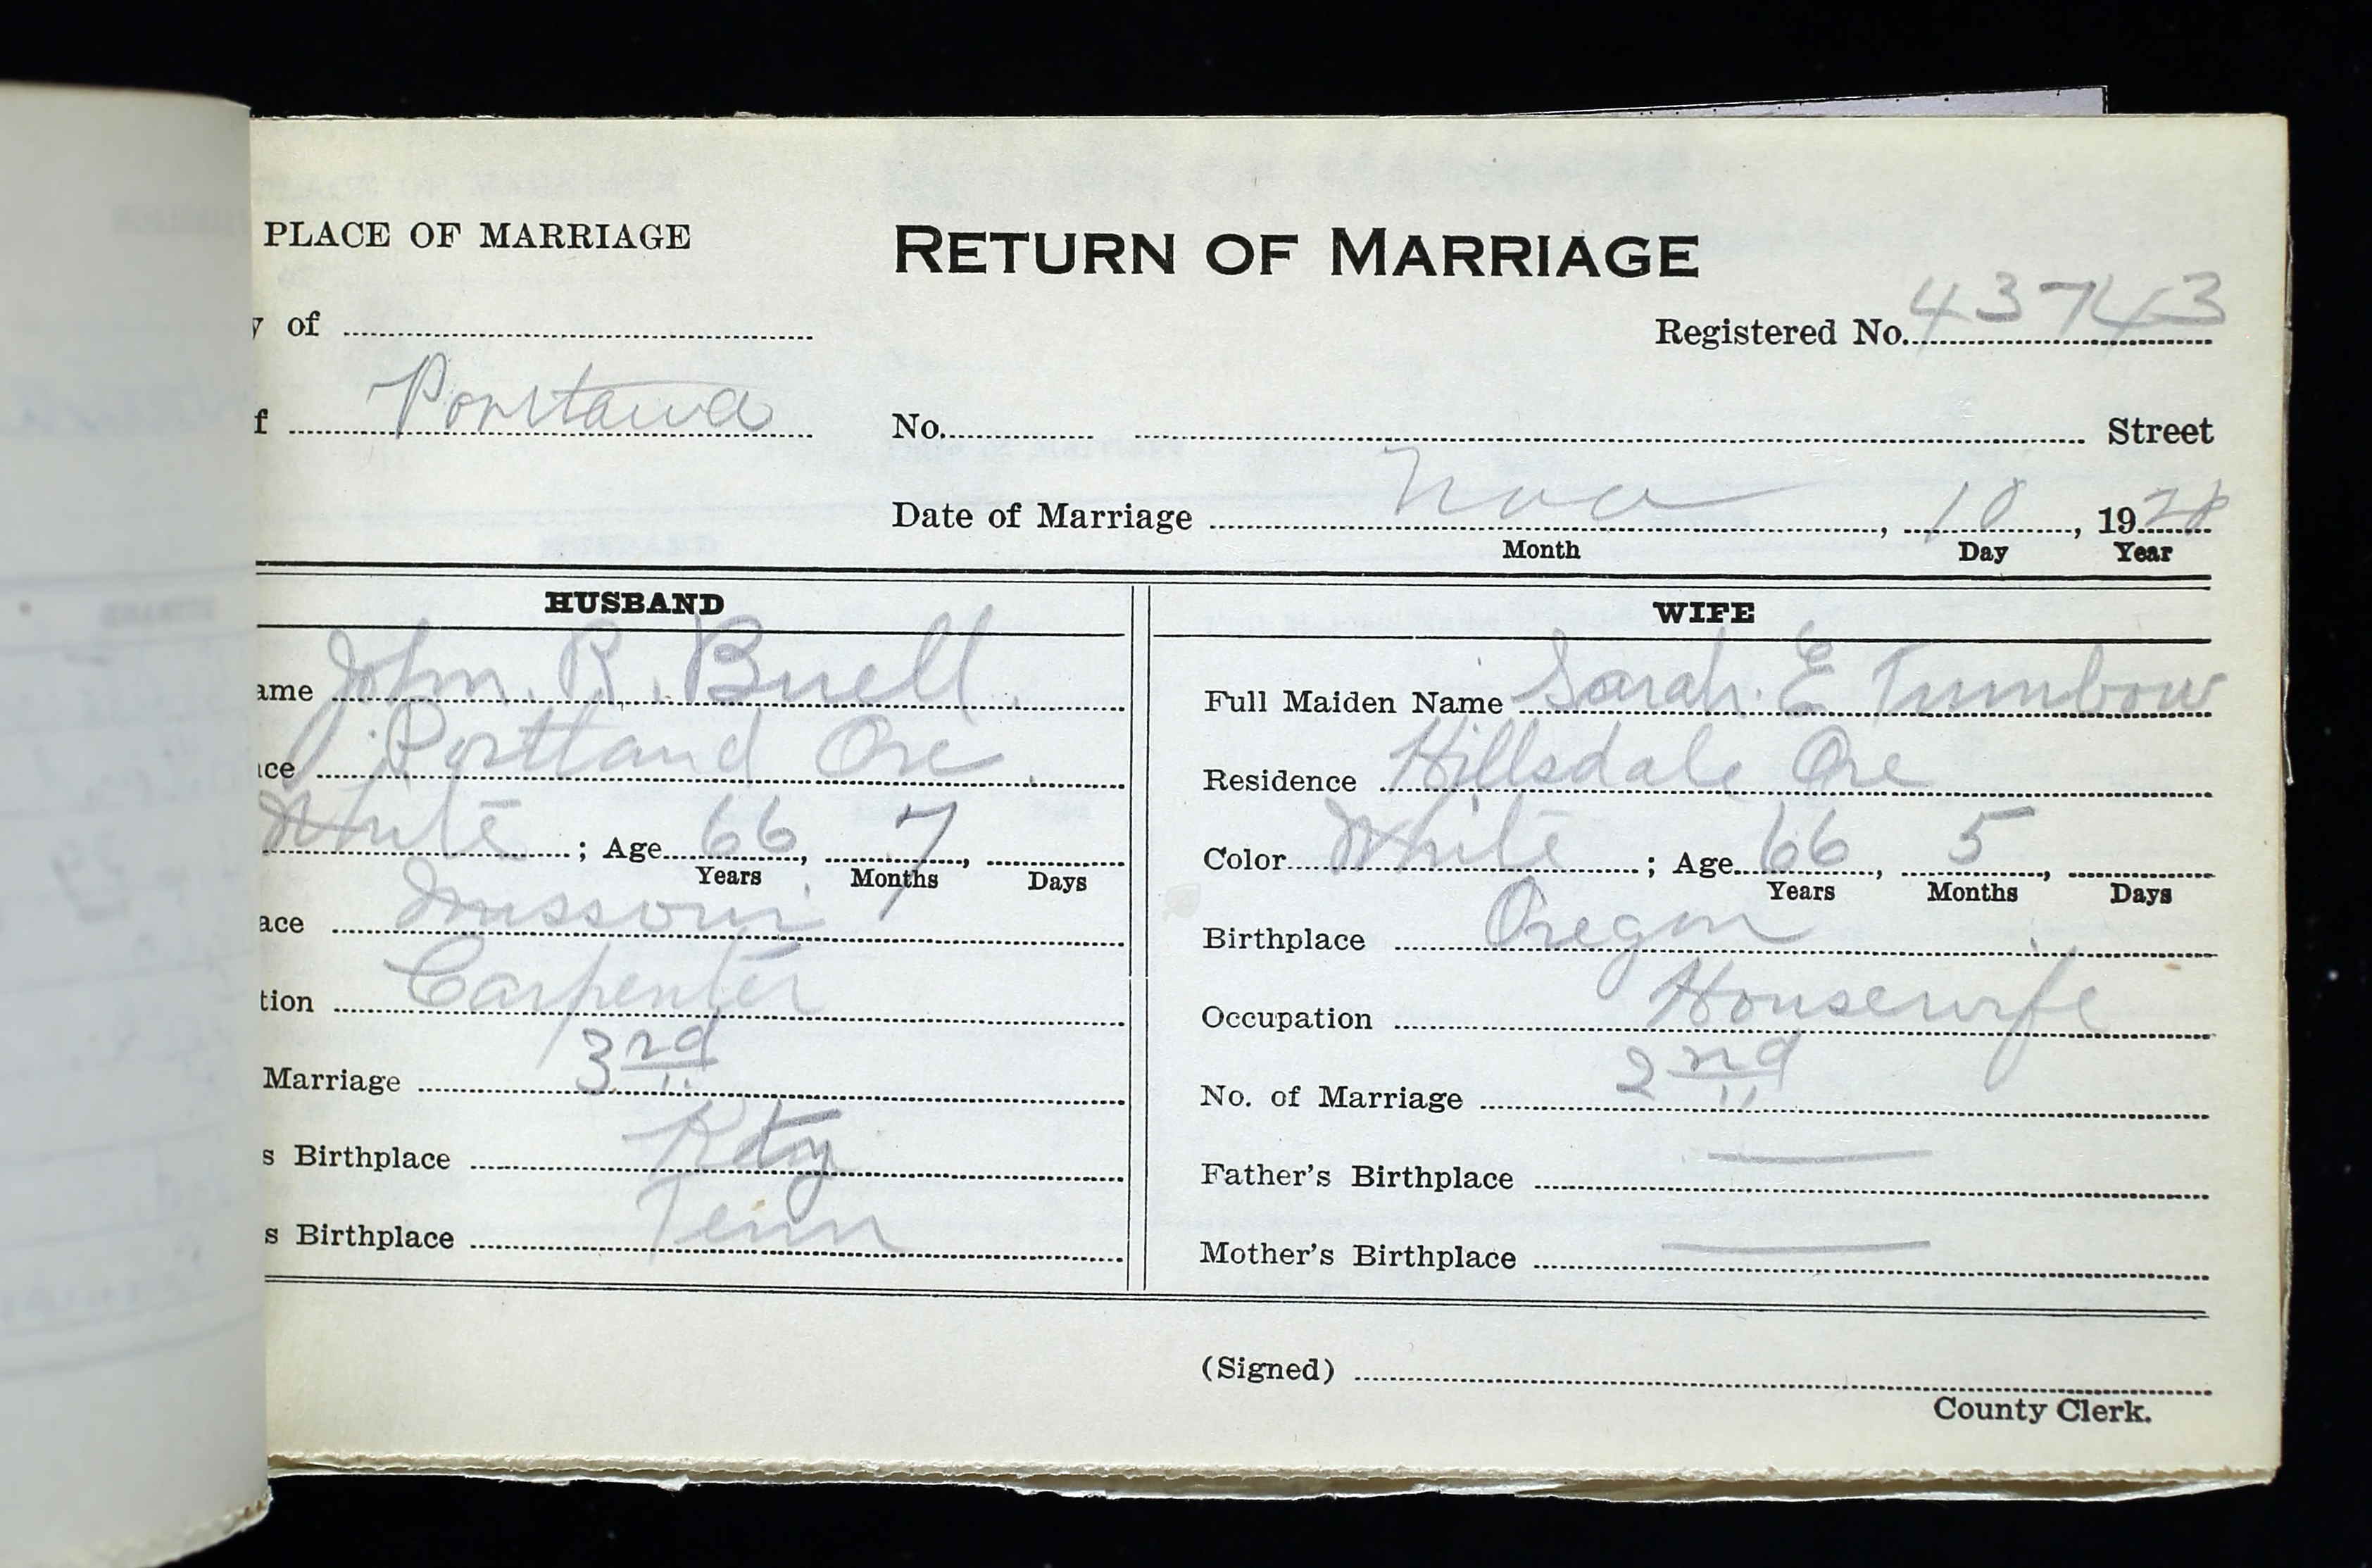 PLACE OF MARRIAGE
RETURN OF MARRIAGE
y of
Registered No. 43743
f Portland
No. Street
Date of Marriage Nov, 10, 19
Month Day Year
HUSBAND
WIFE
ame John. R. Buell.
Full Maiden Name Sarah. E Trumbow
ce Portland Ore.
Residence Hillsdale Ore
White ; Age 66, 7,
Color White ; Age 66, 5,
Years Months Days
Years Months Days
ace Missouri
Birthplace Oregon
tion Carpenter
Occupation Housewife
Marriage 3rd
No. of Marriage 2nd
s Birthplace Kty
Father's Birthplace —
s Birthplace Tenn
Mother's Birthplace —
(Signed)
County Clerk.